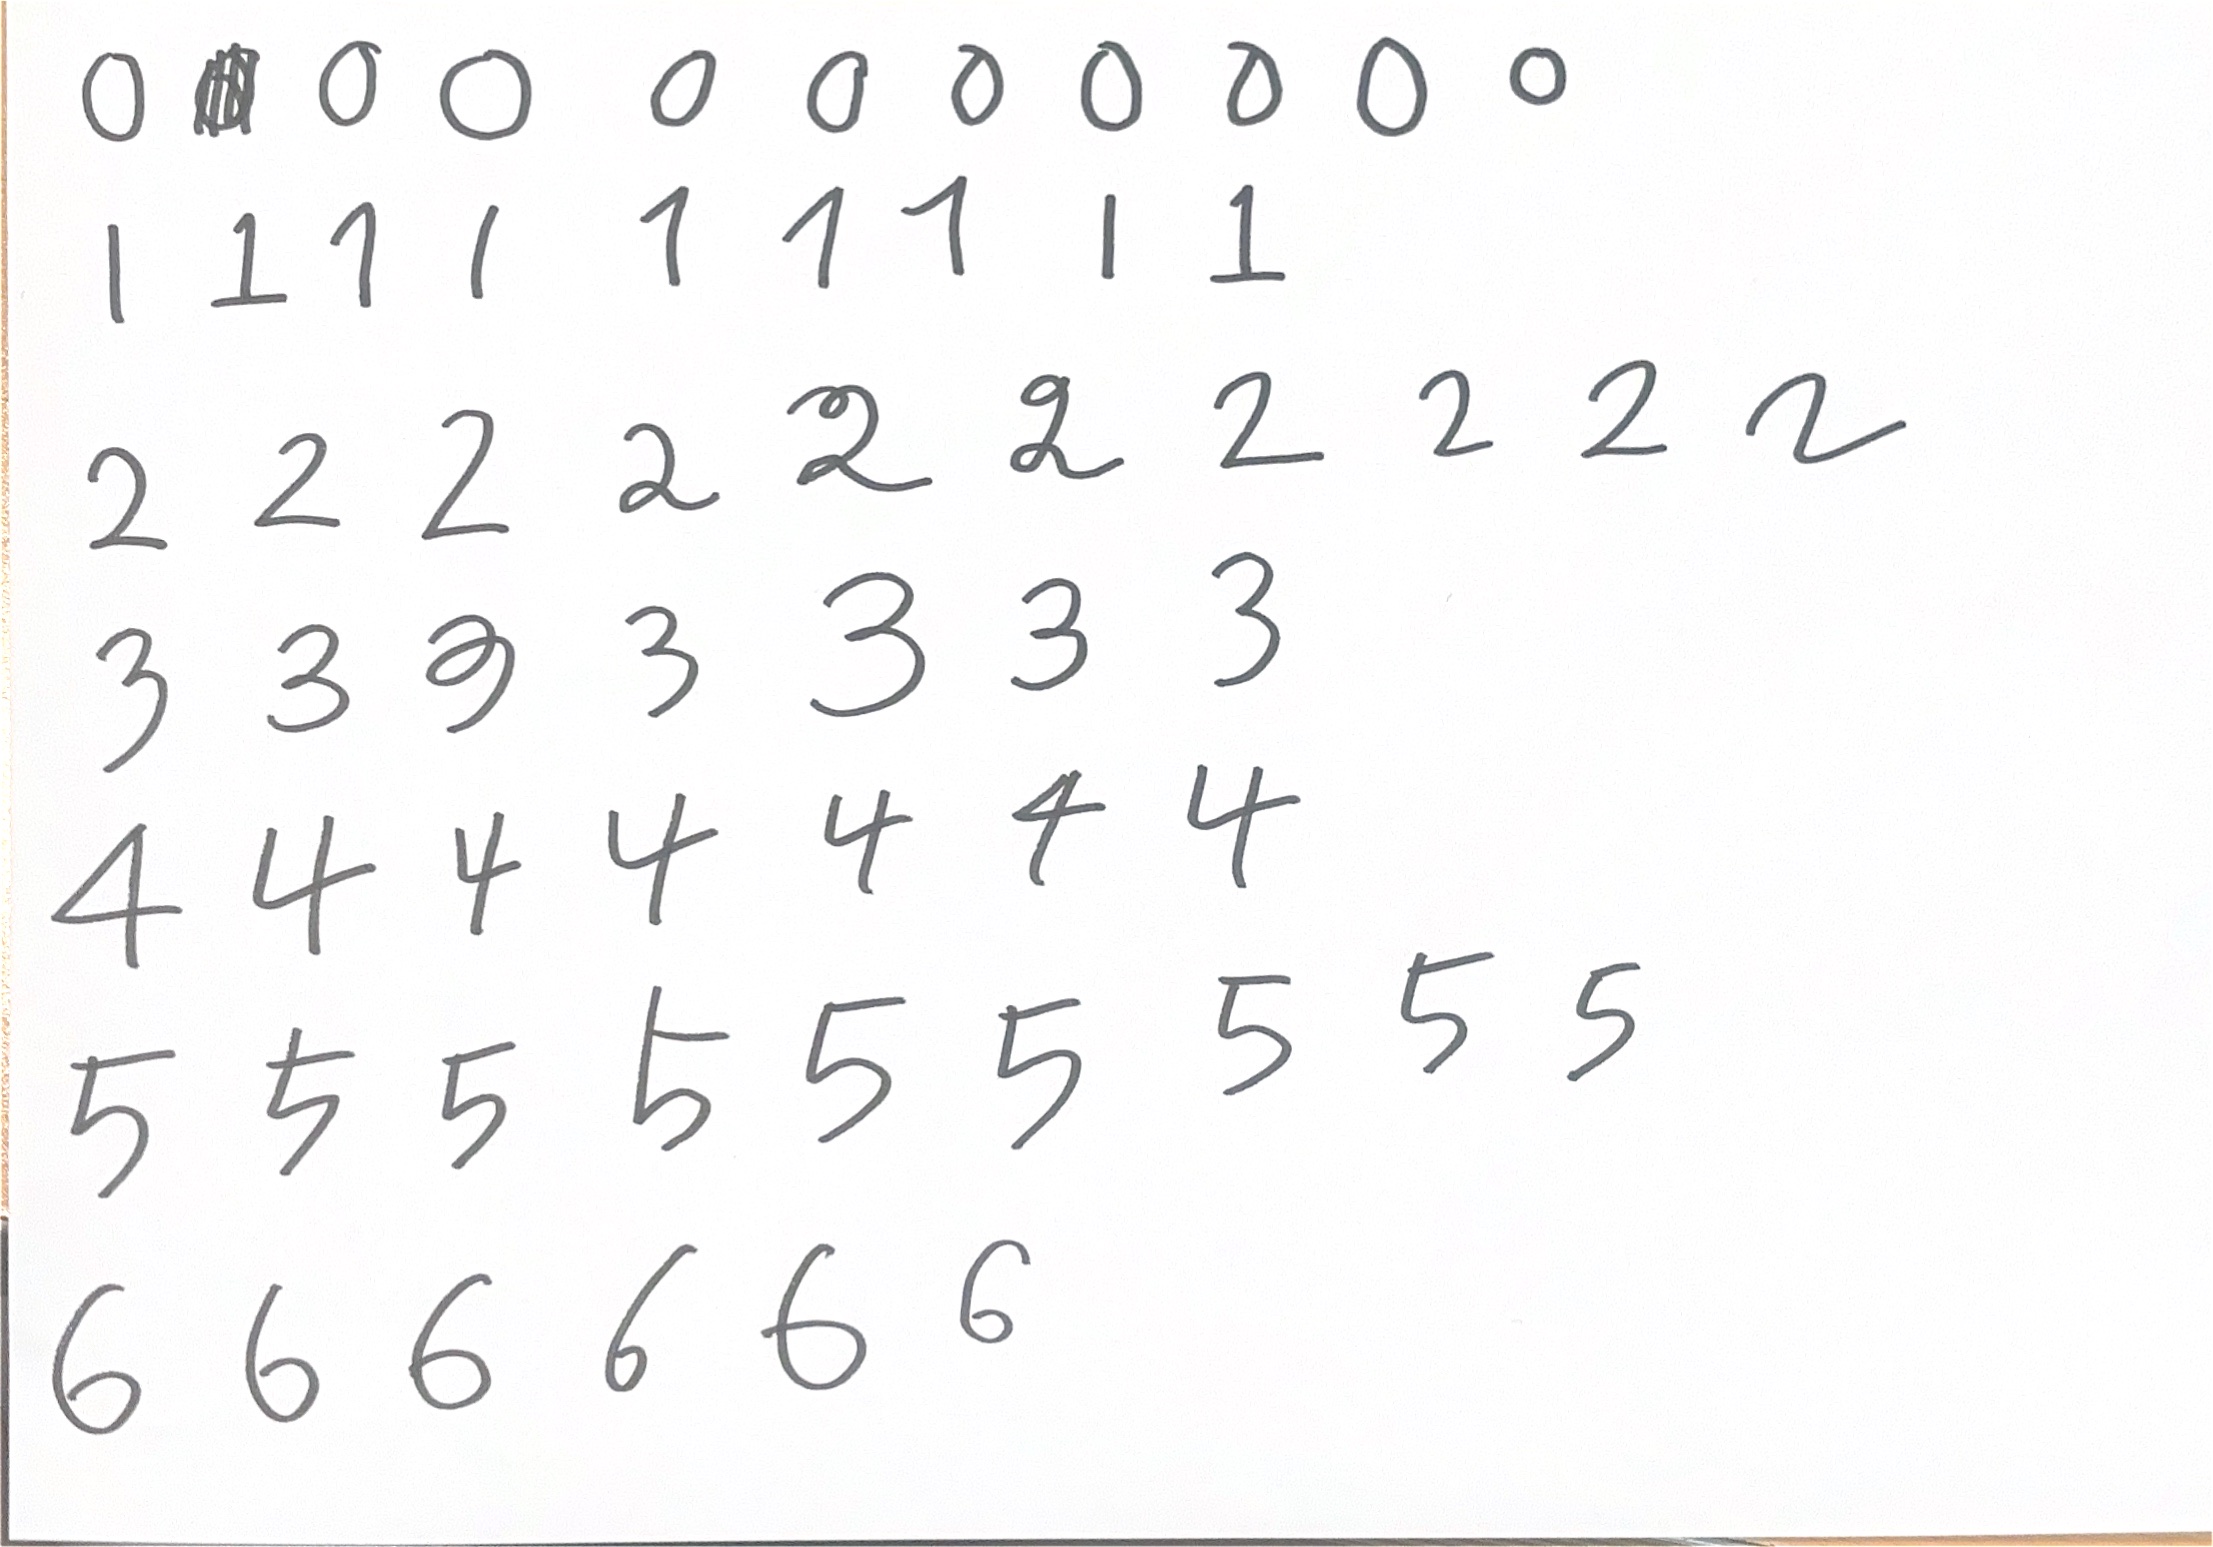 0 0 0 0 0 0 0 0 0 0
1 1 1 1 1 1 1 1 1
2 2 2 2 2 2 2 2 2 2
3 3 3 3 3 3 3
4 4 4 4 4 4 4
5 5 5 5 5 5 5 5 5
6 6 6 6 6 6